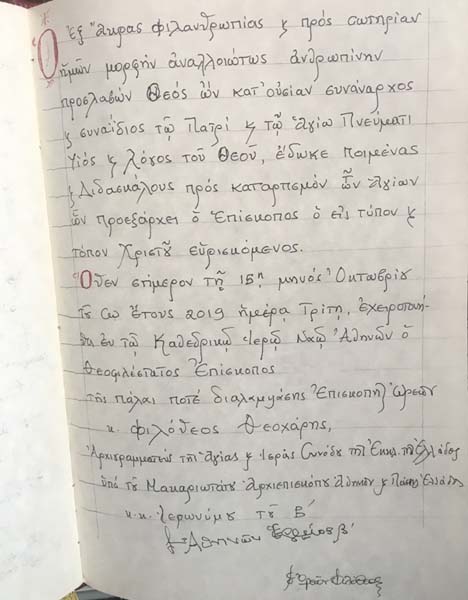 Ὁ ἐξ ἄκρας φιλανθρωπίας ϗ πρός σωτηρίαν
ἡμῶν μορφήν ἀναλλοιώτως ἀνθρωπίνην
προσλαβών Θεός ὤν κατ' οὐσίαν συνάναρχος
ϗ συναΐδιος τῷ Πατρί ϗ τῷ Ἁγίῳ Πνεύματι
Υἱός ϗ Λόγος τοῦ Θεοῦ, ἔδωκε ποιμένας
ϗ Διδασκάλους πρός καταρτισμόν τῶν Ἁγίων
ὧν προεξάρχει ὁ Ἐπίσκοπος ὁ εἰς τύπον ϗ
τόπον Χριστοῦ εὑρισκόμενος.
Ὅθεν σήμερον τῇ 15ῃ μηνός Ὀκτωβρίου
τοῦ ἔτους 2019 ἡμέρᾳ Τρίτῃ, ἐχειροτονή-
θη ἐν τῷ Καθεδρικῷ Ἱερῷ Ναῷ Ἀθηνῶν ὁ
Θεοφιλέστατος Ἐπίσκοπος
τῆς πάλαι ποτέ διαλαμψάσης Ἐπισκοπῆς Ὠρεῶν
κ. Φιλόθεος Θεοχάρης,
Ἀρχιγραμματεύς τῆς Ἁγίας ϗ Ἱερᾶς Συνόδου τῆς Ἐκκλ. τῆς Ἑλλάδος
ὑπό τοῦ Μακαριωτάτου Ἀρχιεπισκόπου Ἀθηνῶν ϗ Πάσης Ἑλλάδος
κ.κ. Ἱερωνύμου τοῦ Β΄
Ἀθηνῶν Β΄